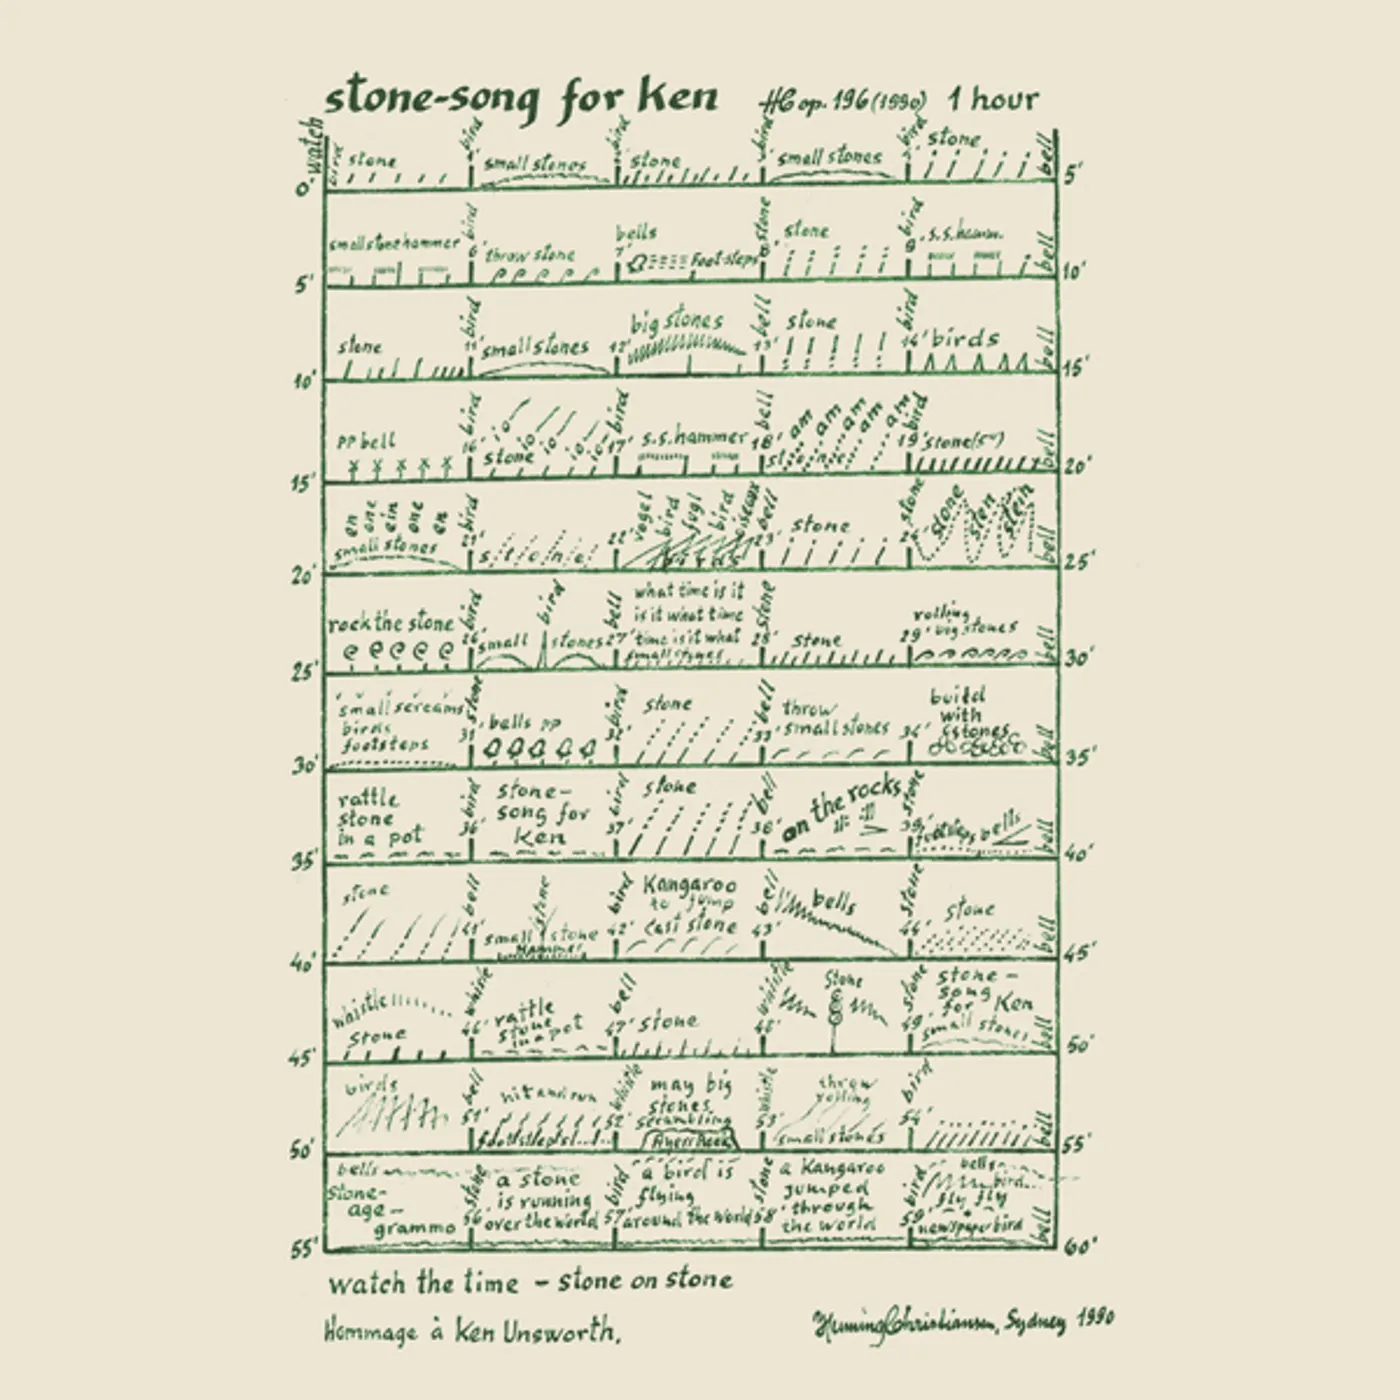 stone-song for Ken HC op. 196 (1990) 1 hour
0'-watch bird stone bird small stones bird stone bird small stones bird stone bell 5'
5' small stone hammer bird 6' throw stone bells 7' Foot-steps stone 8' stone bird 9' s.s.hamm. bell 10'
10' stone bird 11' small stones 12' big stones bell 13' stone bird 14' birds bell 15'
15' PP bell bird 16' io io io io stone bird 17' s.s.hammer bell 18' am am am am am stone bird 19' stone(5") bell 20'
20' en one ein one en small stones bird s/t/o/n/e/ 22' vogel bird fugl bird birds bell 23' stone stone stone sten stein bell 25'
25' rock the stone bird 26' small bird stones bell 27' what time is it
is it what time
time is it what
small stones stone 28' stone 29' rolling big stones bell 30'
30' small screams
birds
footsteps stone 31' bells pp bird 32' stone bell 33' throw
small stones 34' build
with
stones bell 35'
35' rattle
stone
in a pot bird 36' stone-
song for
Ken bird 37' stone bell 38' on the rocks stone 39' footsteps bells bell 40'
40' stone bell 41' small stone stone hammer bird 42' Kangaroo
to jump
cast stone bell 43' bells stone 44' stone bell 45'
45' whistle
stone whistle 46' rattle
stone
in a pot bell 47' stone whistle 48' stone stone 49' stone-
song
for Ken
small stones bell 50'
50' birds bell 51' hit and run
footsteps!...!.. whistle 52' may big
stones
scrambling
Ayers Rock whistle 53' throw
rolling
small stones bird 54' bell 55'
55' bells
stone-
age-
grammo stone 56' a stone
is running
over the world bird 57' a bird is
flying
around the world stone 58' a Kangaroo
jumped
through
the world bird 59' bells
bird...
fly fly
newspaperbird bell 60'
watch the time - stone on stone
Hommage à Ken Unsworth.
Henning Christiansen, Sydney 1990